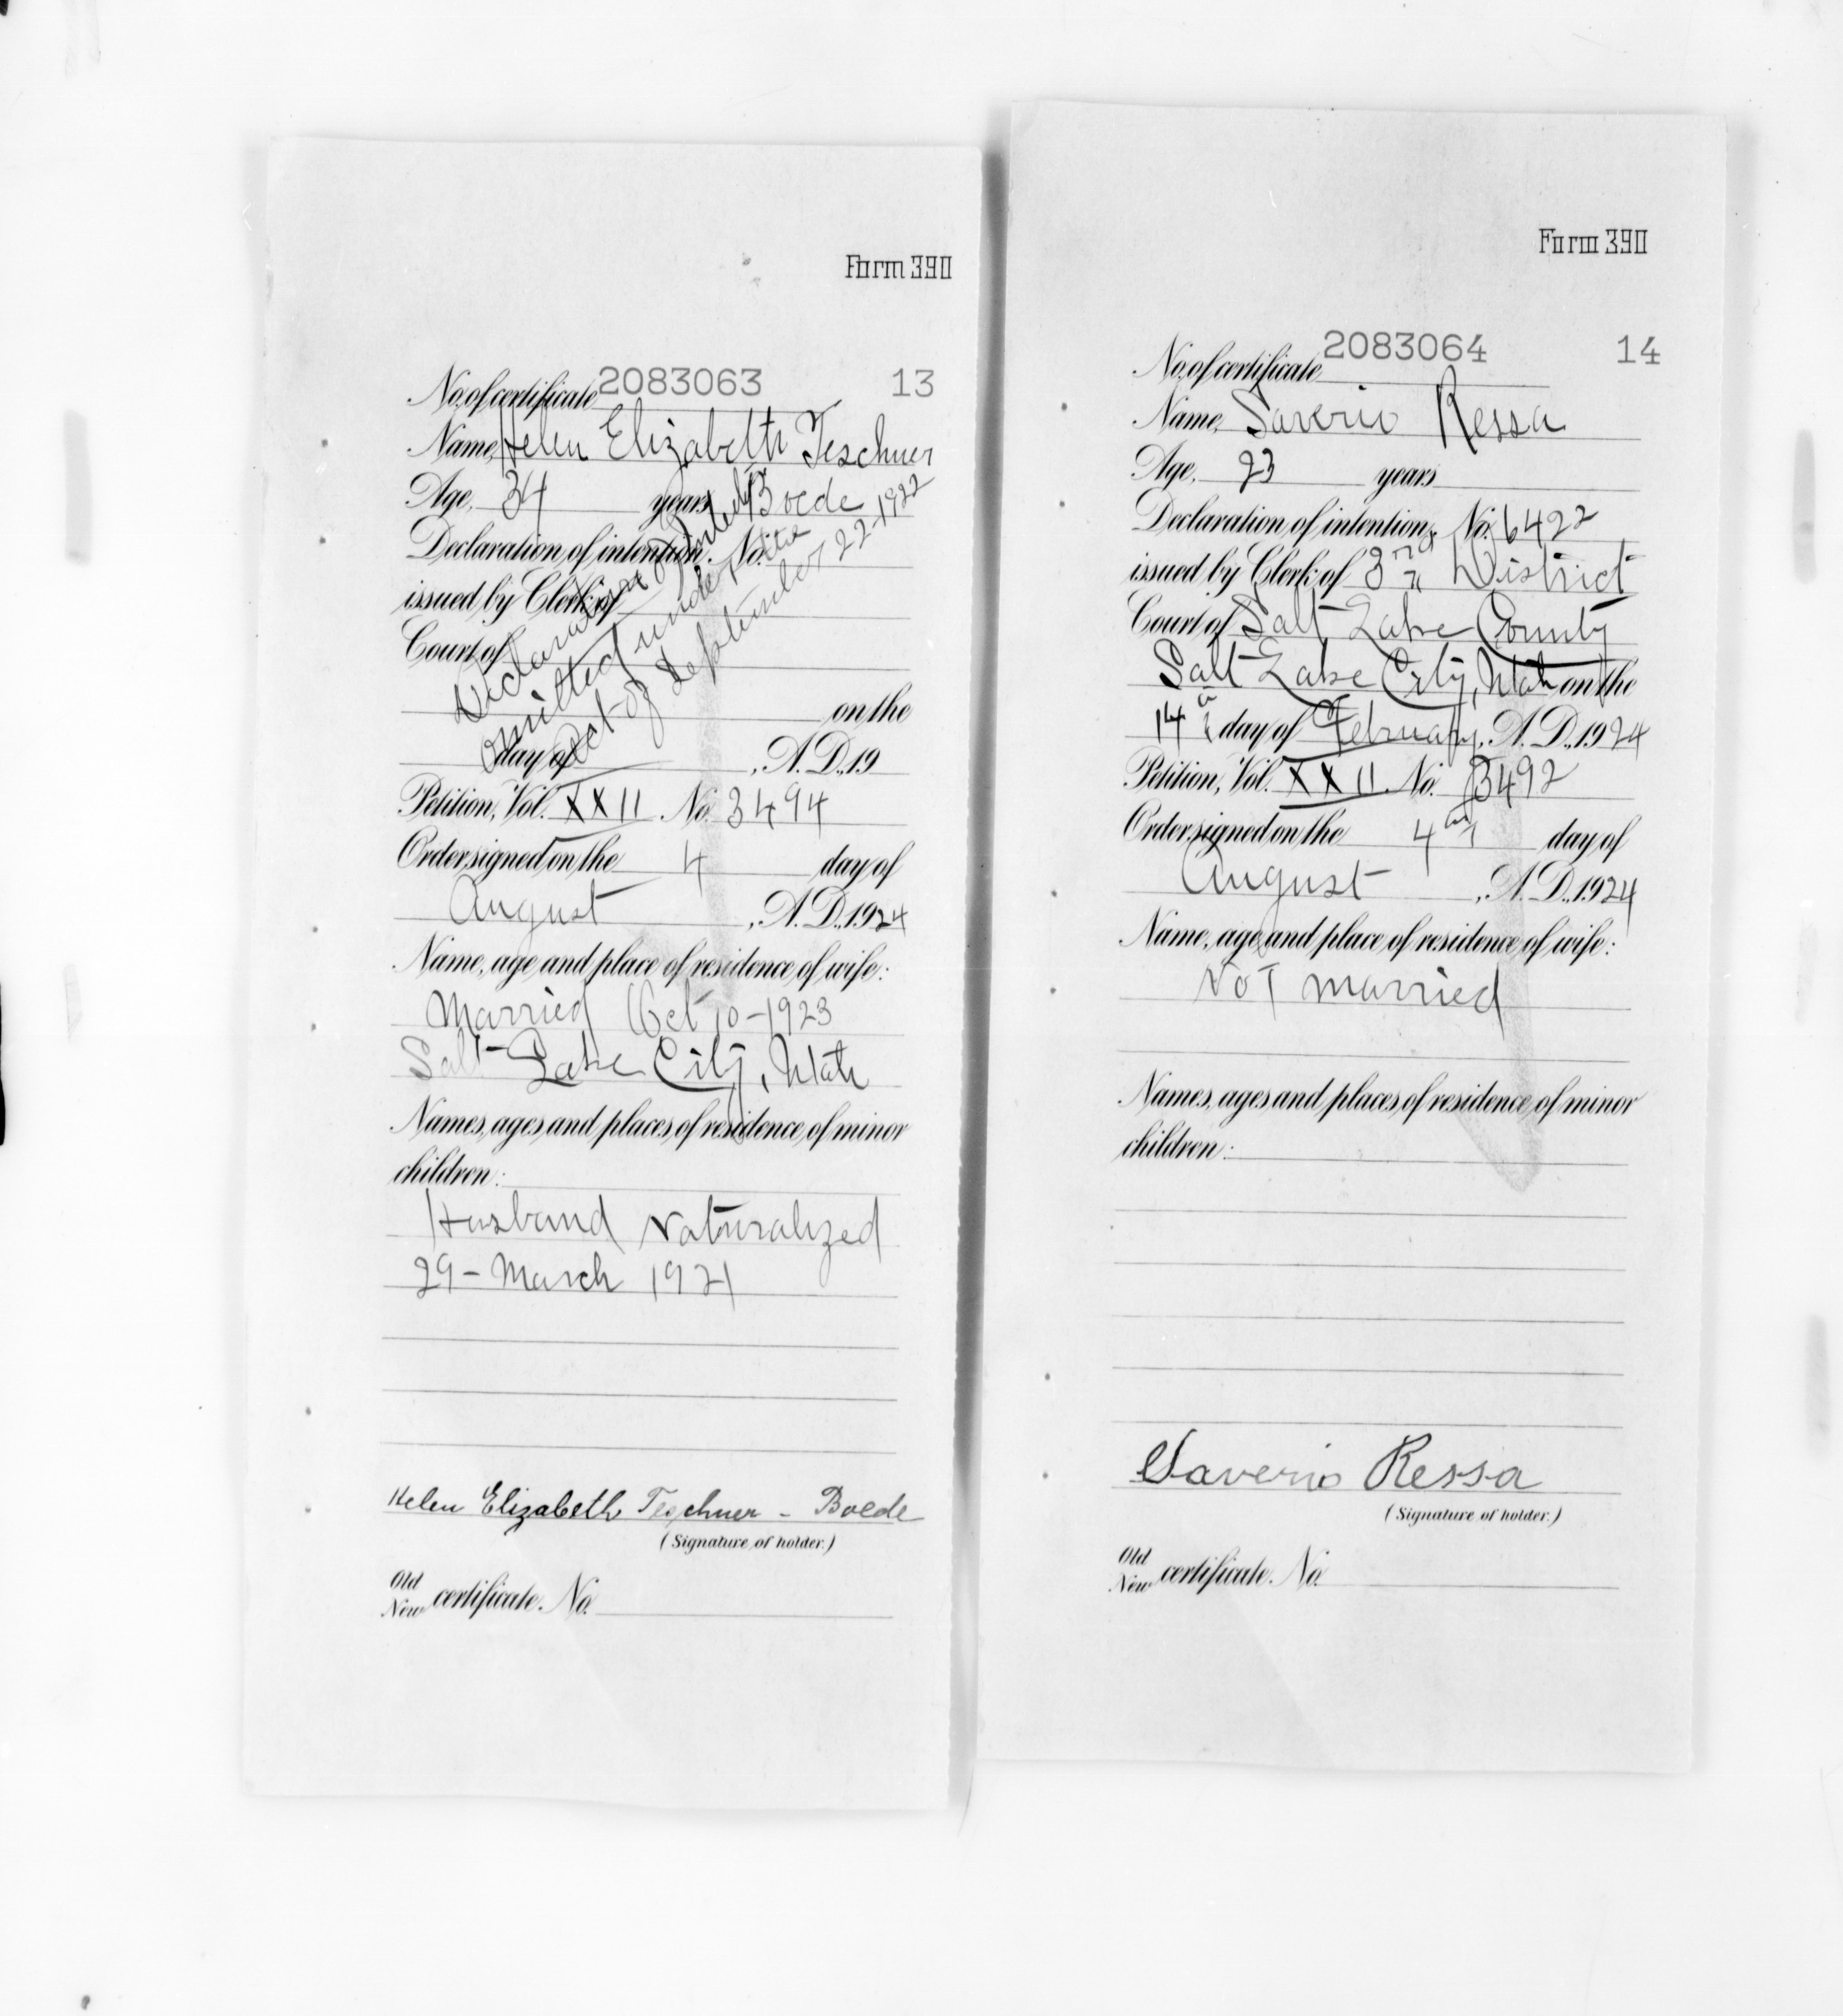 Form 390
No. of certificate 2083063 13
Name, Helen Elizabeth Teschner
Age, 34 years Boede
Declaration of intention, No.
issued by Clerk of
Court of
Declaration of
omitted under the
Act of September 22-1922
on the
day of , A. D., 19
Petition, Vol. XXII. No. 3494
Order signed on the 4 day of
August , A. D., 1924
Name, age and place of residence of wife:
Married Oct 10-1923
Salt Lake City, Utah
Names, ages and places of residence of minor
children:
Husband Naturalized
29 - March 1921
Helen Elizabeth Teschner - Boede
(Signature of holder.)
Old
New certificate No.
Form 390
No. of certificate 2083064 14
Name, Saverio Ressa
Age, 23 years
Declaration of intention, No. 6422
issued by Clerk of 3rd District
Court of Salt Lake County
Salt Lake City, Utah on the
14th day of February, A. D., 1924
Petition, Vol. XXII. No. 3492
Order signed on the 4th day of
August , A. D., 1924
Name, age and place of residence of wife:
Not married
Names, ages and places of residence of minor
children:
Saverio Ressa
(Signature of holder.)
Old
New certificate No.